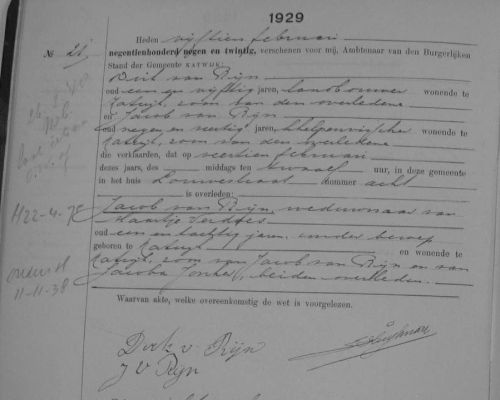 1929
Heden vijftien februari
No 21
negentienhonderd negen en twintig, verschenen voor mij, Ambtenaar van den Burgerlijken
Stand der Gemeente KATWIJK:
Dirk van Rijn
oud een en vijftig jaren, landbouwer wonende te
Katwijk, zoon van den overledene
en Jacob van Rijn
oud negen en veertig jaren, wonende te
Katwijk, zoon van den overledene
die verklaarden, dat op veertien februari
dezes jaars, des middags ten twaalf uur, in deze gemeente
in het huis Louwestraat nummer acht
is overleden:
Jacob van Rijn, weduwnaar van
oud een en tachtig jaren, zonder beroep
geboren te Katwijk en wonende te
Katwijk, zoon van Jacob van Rijn en van
Jacoba Jonker, beiden overleden.
H22-4-75
11-11-38
Waarvan akte, welke overeenkomstig de wet is voorgelezen.
Dirk v. Rijn
J v Rijn